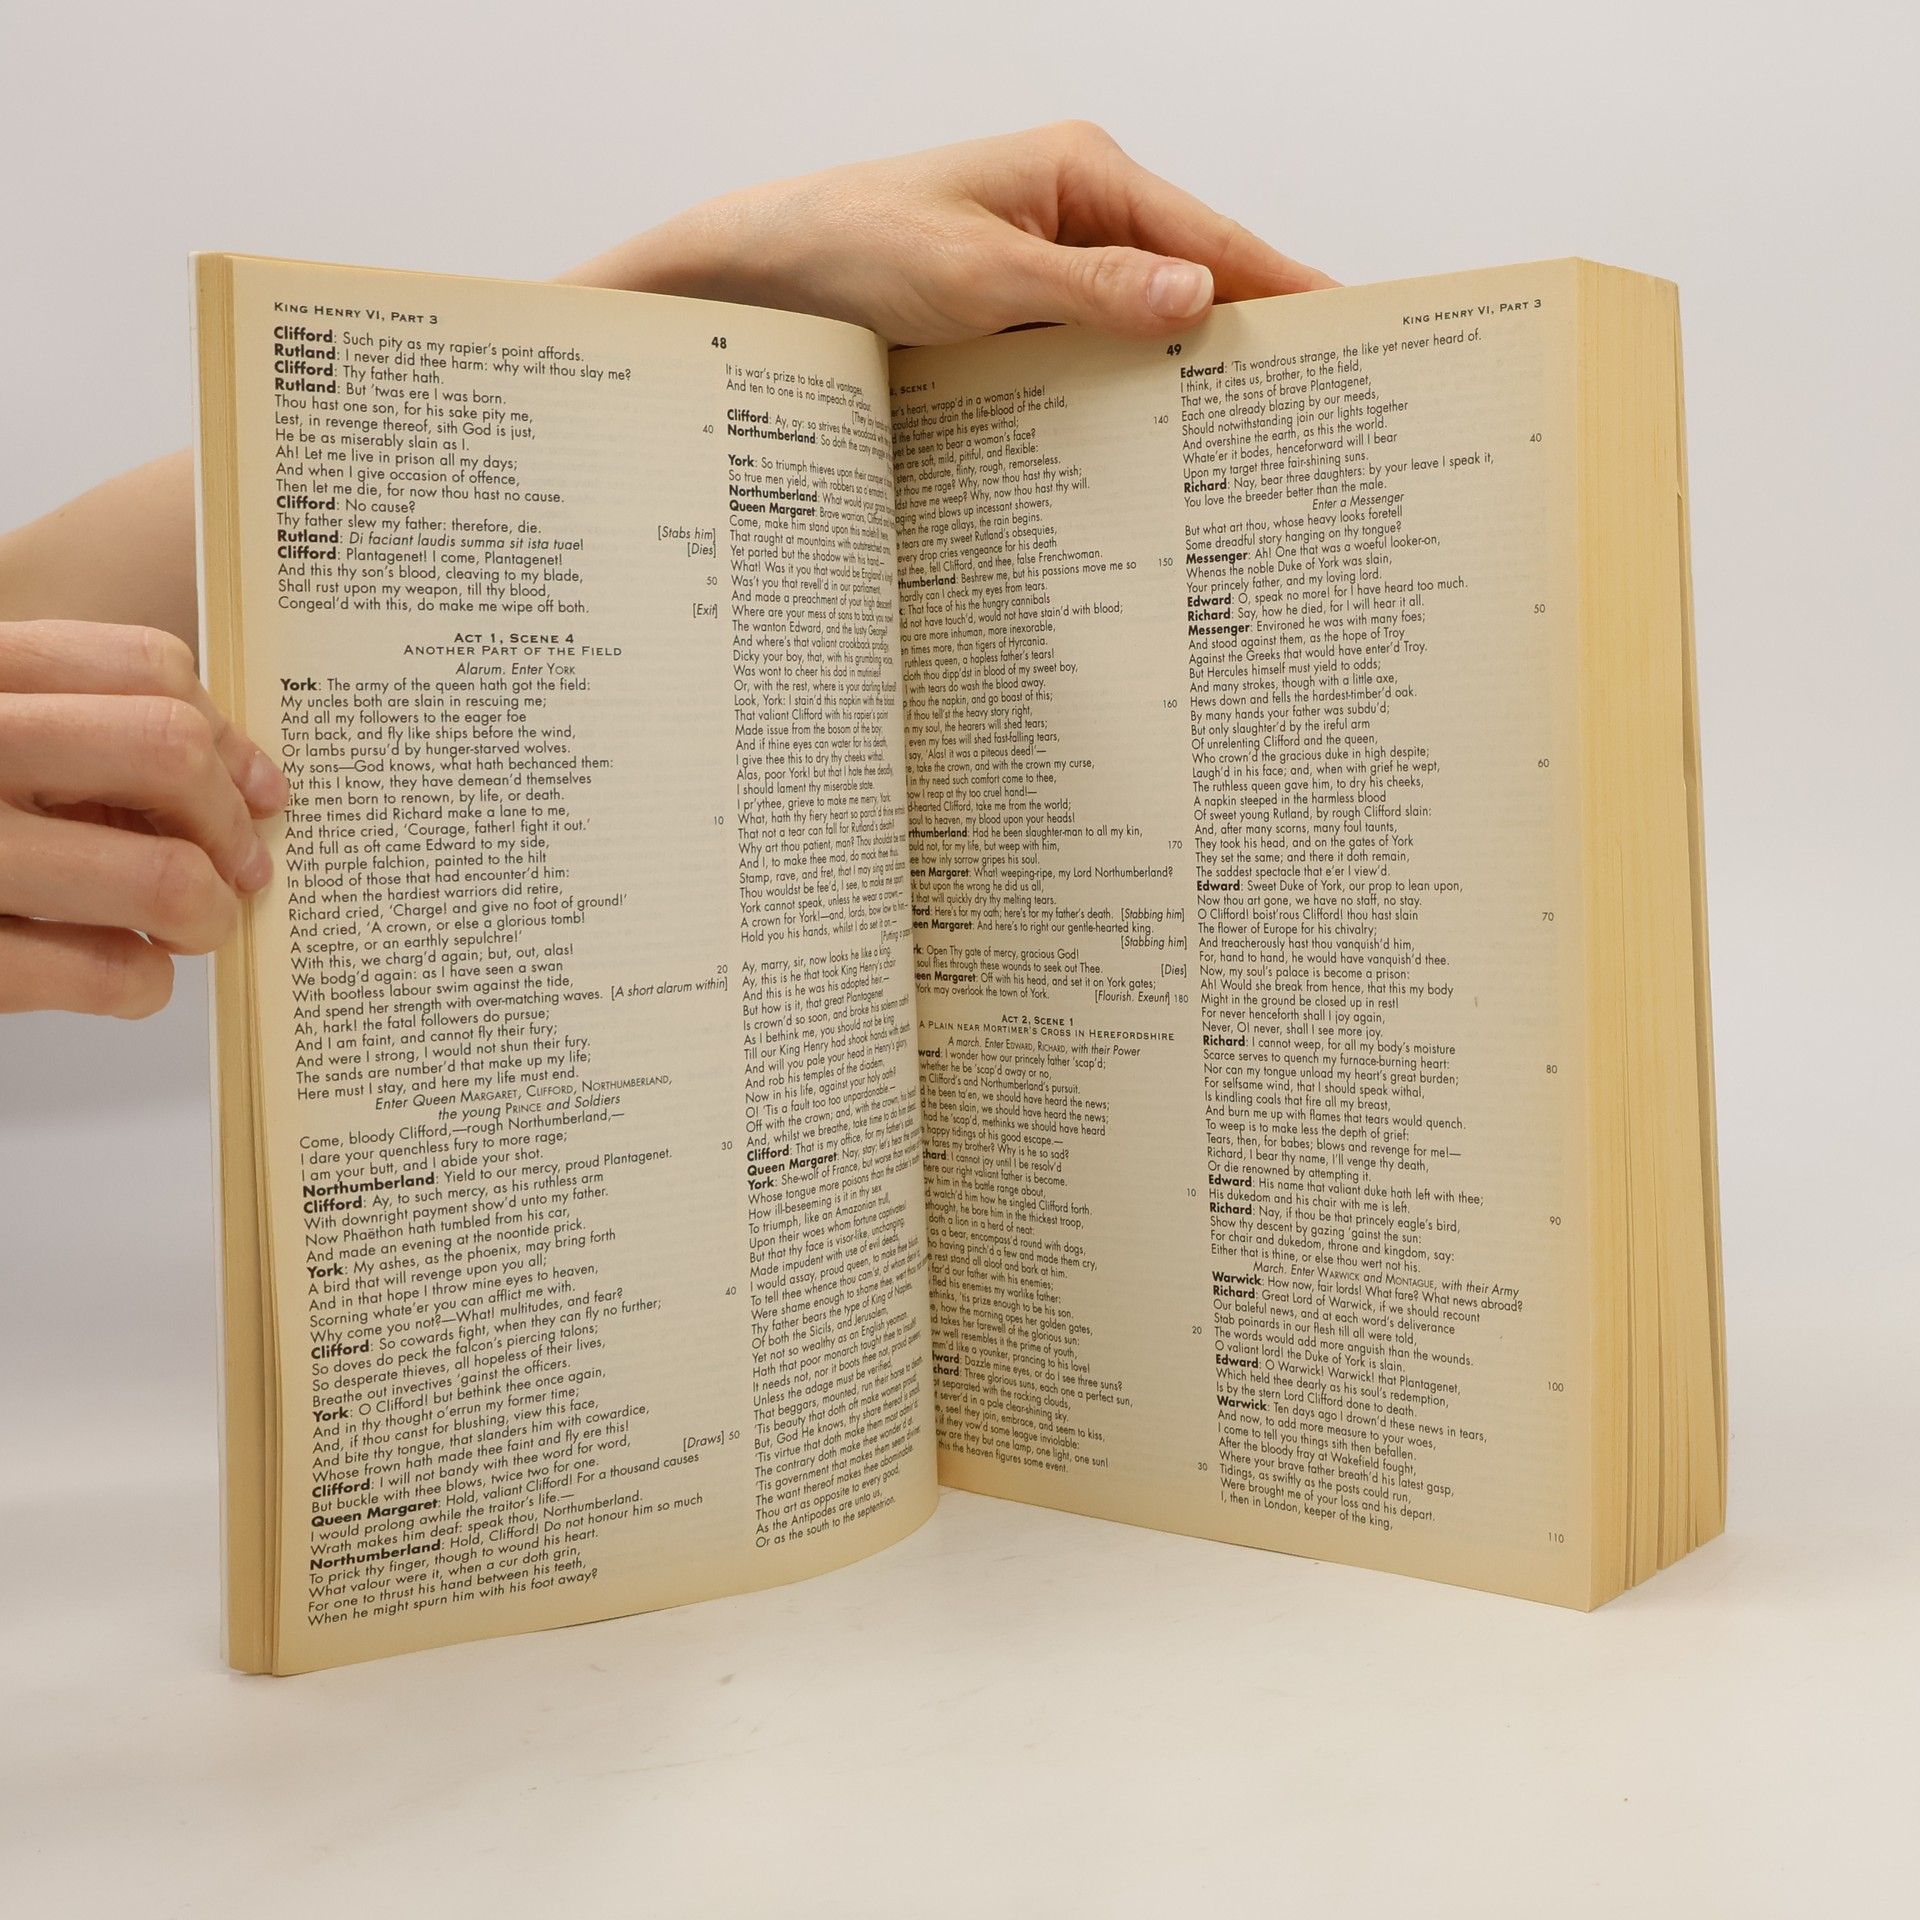 KING HENRY VI, PART 3
48
Clifford: Such pity as my rapier's point affords.
Rutland: I never did thee harm: why wilt thou slay me?
Clifford: Thy father hath.
Rutland: But 'twas ere I was born.
Thou hast one son, for his sake pity me,
Lest, in revenge thereof, sith God is just, 40
He be as miserably slain as I.
Ah! Let me live in prison all my days;
And when I give occasion of offence,
Then let me die, for now thou hast no cause.
Clifford: No cause?
Thy father slew my father: therefore, die. [Stabs him]
Rutland: Di faciant laudis summa sit ista tuae! [Dies]
Clifford: Plantagenet! I come, Plantagenet!
And this thy son's blood, cleaving to my blade,
Shall rust upon my weapon, till thy blood, 50
Congeal'd with this, do make me wipe off both. [Exit]
ACT 1, SCENE 4
ANOTHER PART OF THE FIELD
Alarum. Enter YORK
York: The army of the queen hath got the field:
My uncles both are slain in rescuing me;
And all my followers to the eager foe
Turn back, and fly like ships before the wind,
Or lambs pursu'd by hunger-starved wolves.
My sons—God knows, what hath bechanced them:
But this I know, they have demean'd themselves
Like men born to renown, by life, or death.
Three times did Richard make a lane to me,
And thrice cried, 'Courage, father! fight it out.' 10
And full as oft came Edward to my side,
With purple falchion, painted to the hilt
In blood of those that had encounter'd him:
And when the hardiest warriors did retire,
Richard cried, 'Charge! and give no foot of ground!'
And cried, 'A crown, or else a glorious tomb!
A sceptre, or an earthly sepulchre!'
With this, we charg'd again; but, out, alas!
We bodg'd again: as I have seen a swan
With bootless labour swim against the tide, 20
And spend her strength with over-matching waves. [A short alarum within]
Ah, hark! the fatal followers do pursue;
And I am faint, and cannot fly their fury;
And were I strong, I would not shun their fury.
The sands are number'd that make up my life;
Here must I stay, and here my life must end.
Enter Queen MARGARET, CLIFFORD, NORTHUMBERLAND,
the young PRINCE and Soldiers
Come, bloody Clifford,—rough Northumberland,—
I dare your quenchless fury to more rage;
I am your butt, and I abide your shot.
Northumberland: Yield to our mercy, proud Plantagenet. 30
Clifford: Ay, to such mercy, as his ruthless arm
With downright payment show'd unto my father.
Now Phaëthon hath tumbled from his car,
And made an evening at the noontide prick.
York: My ashes, as the phoenix, may bring forth
A bird that will revenge upon you all;
And in that hope I throw mine eyes to heaven,
Scorning whate'er you can afflict me with.
Why come you not?—What! multitudes, and fear?
Clifford: So cowards fight, when they can fly no further; 40
So doves do peck the falcon's piercing talons;
So desperate thieves, all hopeless of their lives,
Breathe out invectives 'gainst the officers.
York: O Clifford! but bethink thee once again,
And in thy thought o'errun my former time;
And, if thou canst for blushing, view this face,
And bite thy tongue, that slanders him with cowardice,
Whose frown hath made thee faint and fly ere this!
Clifford: I will not bandy with thee word for word,
But buckle with thee blows, twice two for one. [Draws] 50
Queen Margaret: Hold, valiant Clifford! For a thousand causes
I would prolong awhile the traitor's life.—
Wrath makes him deaf: speak thou, Northumberland.
Northumberland: Hold, Clifford! Do not honour him so much
To prick thy finger, though to wound his heart.
What valour were it, when a cur doth grin,
For one to thrust his hand between his teeth,
When he might spurn him with his foot away?
It is war's prize to take all vantages,
And ten to one is no impeach of valour.
[They lay
Clifford: Ay, ay: so strives the woodcock
Northumberland: So doth the cony struggle
York: So triumph thieves upon their conquer'd
So true men yield, with robbers so o'ermatch'd.
Northumberland: What would your grace
Queen Margaret: Brave warriors, Clifford and
Come, make him stand upon this molehill here,
That raught at mountains with outstretched arms,
Yet parted but the shadow with his hand.—
What! Was it you that would be England's king?
Was't you that revell'd in our parliament,
And made a preachment of your high descent?
Where are your mess of sons to back you now?
The wanton Edward, and the lusty George?
And where's that valiant crookback prodigy,
Dicky your boy, that, with his grumbling voice,
Was wont to cheer his dad in mutinies?
Or, with the rest, where is your darling Rutland?
Look, York: I stain'd this napkin with the blood
That valiant Clifford with his rapier's point
Made issue from the bosom of the boy;
And if thine eyes can water for his death,
I give thee this to dry thy cheeks withal.
Alas, poor York! but that I hate thee deadly,
I should lament thy miserable state.
I pr'ythee, grieve to make me merry, York:
What, hath thy fiery heart so parch'd thine entrails
That not a tear can fall for Rutland's death?
Why art thou patient, man? Thou shouldst be mad;
And I, to make thee mad, do mock thee thus.
Stamp, rave, and fret, that I may sing and dance.
Thou wouldst be fee'd, I see, to make me sport:
York cannot speak, unless he wear a crown.—
A crown for York!—and, lords, bow low to him:—
Hold you his hands, whilst I do set it on.—
[Putting a
Ay, marry, sir, now looks he like a king.
Ay, this is he that took King Henry's chair
And this is he was his adopted heir.—
But how is it, that great Plantagenet
Is crown'd so soon, and broke his solemn oath?
As I bethink me, you should not be king
Till our King Henry had shook hands with death.
And will you pale your head in Henry's glory,
And rob his temples of the diadem,
Now in his life, against your holy oath?
O! 'Tis a fault too too unpardonable.—
Off with the crown; and, with the crown, his head!
And, whilst we breathe, take time to do him dead.
Clifford: That is my office, for my father's sake.
Queen Margaret: Nay, stay; let's hear the
York: She-wolf of France, but worse than wolves of
Whose tongue more poisons than the adder's
How ill-beseeming is it in thy sex
To triumph, like an Amazonian trull,
Upon their woes whom fortune captivates!
But that thy face is visor-like, unchanging,
Made impudent with use of evil deeds,
I would assay, proud queen, to make thee blush:
To tell thee whence thou cam'st, of whom
Were shame enough to shame thee, wert thou
Thy father bears the type of King of Naples,
Of both the Sicils, and Jerusalem,
Yet not so wealthy as an English yeoman.
Hath that poor monarch taught thee to insult?
It needs not, nor it boots thee not, proud queen,
Unless the adage must be verified,
That beggars, mounted, run their horse to death.
'Tis beauty that doth oft make women proud;
But, God He knows, thy share thereof is small.
'Tis virtue that doth make them most admir'd;
The contrary doth make thee wonder'd at.
'Tis government that makes them seem divine;
The want thereof makes thee abominable.
Thou art as opposite to every good,
As the Antipodes are unto us,
Or as the south to the septentrion.
49
KING HENRY VI, PART 3
SCENE 1
heart, wrapp'd in a woman's hide!
couldst thou drain the life-blood of the child,
the father wipe his eyes withal; 140
be seen to bear a woman's face?
are soft, mild, pitiful, and flexible:
stern, obdurate, flinty, rough, remorseless.
thou me rage? Why, now thou hast thy wish;
have me weep? Why, now thou hast thy will.
wind blows up incessant showers,
when the rage allays, the rain begins.
tears are my sweet Rutland's obsequies,
every drop cries vengeance for his death
thee, fell Clifford, and thee, false Frenchwoman.
Beshrew me, but his passions move me so 150
hardly can I check my eyes from tears.
That face of his the hungry cannibals
not have touch'd, would not have stain'd with blood;
you are more inhuman, more inexorable,
times more, than tigers of Hyrcania.
ruthless queen, a hapless father's tears!
cloth thou dipp'dst in blood of my sweet boy,
with tears do wash the blood away.
thou the napkin, and go boast of this; 160
if thou tell'st the heavy story right,
my soul, the hearers will shed tears;
even my foes will shed fast-falling tears,
say, 'Alas! it was a piteous deed!'—
take the crown, and with the crown my curse,
in thy need such comfort come to thee,
I reap at thy too cruel hand!—
Clifford, take me from the world;
soul to heaven, my blood upon your heads!
Had he been slaughter-man to all my kin,
not, for my life, but weep with him, 170
how inly sorrow gripes his soul.
Margaret: What! weeping-ripe, my Lord Northumberland?
but upon the wrong he did us all,
that will quickly dry thy melting tears.
Here's for my oath; here's for my father's death. [Stabbing him]
Margaret: And here's to right our gentle-hearted king.
[Stabbing him]
Open Thy gate of mercy, gracious God!
soul flies through these wounds to seek out Thee. [Dies]
Margaret: Off with his head, and set it on York gates;
York may overlook the town of York. [Flourish. Exeunt] 180
ACT 2, SCENE 1
A PLAIN NEAR MORTIMER'S CROSS IN HEREFORDSHIRE
A march. Enter EDWARD, RICHARD, with their Power
I wonder how our princely father 'scap'd;
whether he be 'scap'd away or no,
Clifford's and Northumberland's pursuit.
he been ta'en, we should have heard the news;
he been slain, we should have heard the news;
had he 'scap'd, methinks we should have heard
happy tidings of his good escape.—
fares my brother? Why is he so sad?
I cannot joy until I be resolv'd
our right valiant father is become.
him in the battle range about, 10
watch'd him how he singled Clifford forth.
he bore him in the thickest troop,
doth a lion in a herd of neat:
as a bear, encompass'd round with dogs,
having pinch'd a few and made them cry,
rest stand all aloof and bark at him.
far'd our father with his enemies;
fled his enemies my warlike father:
'tis prize enough to be his son.
how the morning opes her golden gates, 20
takes her farewell of the glorious sun;
well resembles it the prime of youth,
like a younker, prancing to his love!
Dazzle mine eyes, or do I see three suns?
Three glorious suns, each one a perfect sun,
separated with the racking clouds,
sever'd in a pale clear-shining sky.
see! they join, embrace, and seem to kiss,
if they vow'd some league inviolable:
are they but one lamp, one light, one sun! 30
this the heaven figures some event.
Edward: 'Tis wondrous strange, the like yet never heard of.
I think, it cites us, brother, to the field,
That we, the sons of brave Plantagenet,
Each one already blazing by our meeds,
Should notwithstanding join our lights together
And overshine the earth, as this the world.
Whate'er it bodes, henceforward will I bear
Upon my target three fair-shining suns. 40
Richard: Nay, bear three daughters: by your leave I speak it,
You love the breeder better than the male.
Enter a Messenger
But what art thou, whose heavy looks foretell
Some dreadful story hanging on thy tongue?
Messenger: Ah! One that was a woeful looker-on,
Whenas the noble Duke of York was slain,
Your princely father, and my loving lord.
Edward: O, speak no more! for I have heard too much.
Richard: Say, how he died, for I will hear it all.
Messenger: Environed he was with many foes; 50
And stood against them, as the hope of Troy
Against the Greeks that would have enter'd Troy.
But Hercules himself must yield to odds;
And many strokes, though with a little axe,
Hews down and fells the hardest-timber'd oak.
By many hands your father was subdu'd;
But only slaughter'd by the ireful arm
Of unrelenting Clifford and the queen,
Who crown'd the gracious duke in high despite;
Laugh'd in his face; and, when with grief he wept, 60
The ruthless queen gave him, to dry his cheeks,
A napkin steeped in the harmless blood
Of sweet young Rutland, by rough Clifford slain:
And, after many scorns, many foul taunts,
They took his head, and on the gates of York
They set the same; and there it doth remain,
The saddest spectacle that e'er I view'd.
Edward: Sweet Duke of York, our prop to lean upon,
Now thou art gone, we have no staff, no stay.
O Clifford! boist'rous Clifford! thou hast slain 70
The flower of Europe for his chivalry;
And treacherously hast thou vanquish'd him,
For, hand to hand, he would have vanquish'd thee.
Now, my soul's palace is become a prison:
Ah! Would she break from hence, that this my body
Might in the ground be closed up in rest!
For never henceforth shall I joy again,
Never, O! never, shall I see more joy.
Richard: I cannot weep, for all my body's moisture
Scarce serves to quench my furnace-burning heart: 80
Nor can my tongue unload my heart's great burden;
For selfsame wind, that I should speak withal,
Is kindling coals that fire all my breast,
And burn me up with flames that tears would quench.
To weep is to make less the depth of grief:
Tears, then, for babes; blows and revenge for me!—
Richard, I bear thy name, I'll venge thy death,
Or die renowned by attempting it.
Edward: His name that valiant duke hath left with thee;
His dukedom and his chair with me is left. 90
Richard: Nay, if thou be that princely eagle's bird,
Show thy descent by gazing 'gainst the sun:
For chair and dukedom, throne and kingdom, say:
Either that is thine, or else thou wert not his.
March. Enter WARWICK and MONTAGUE, with their Army
Warwick: How now, fair lords! What fare? What news abroad?
Richard: Great Lord of Warwick, if we should recount
Our baleful news, and at each word's deliverance
Stab poinards in our flesh till all were told,
The words would add more anguish than the wounds.
O valiant lord! the Duke of York is slain.
Edward: O Warwick! Warwick! that Plantagenet, 100
Which held thee dearly as his soul's redemption,
Is by the stern Lord Clifford done to death.
Warwick: Ten days ago I drown'd these news in tears,
And now, to add more measure to your woes,
I come to tell you things sith then befallen.
After the bloody fray at Wakefield fought,
Where your brave father breath'd his latest gasp,
Tidings, as swiftly as the posts could run,
Were brought me of your loss and his depart.
I, then in London, keeper of the king, 110